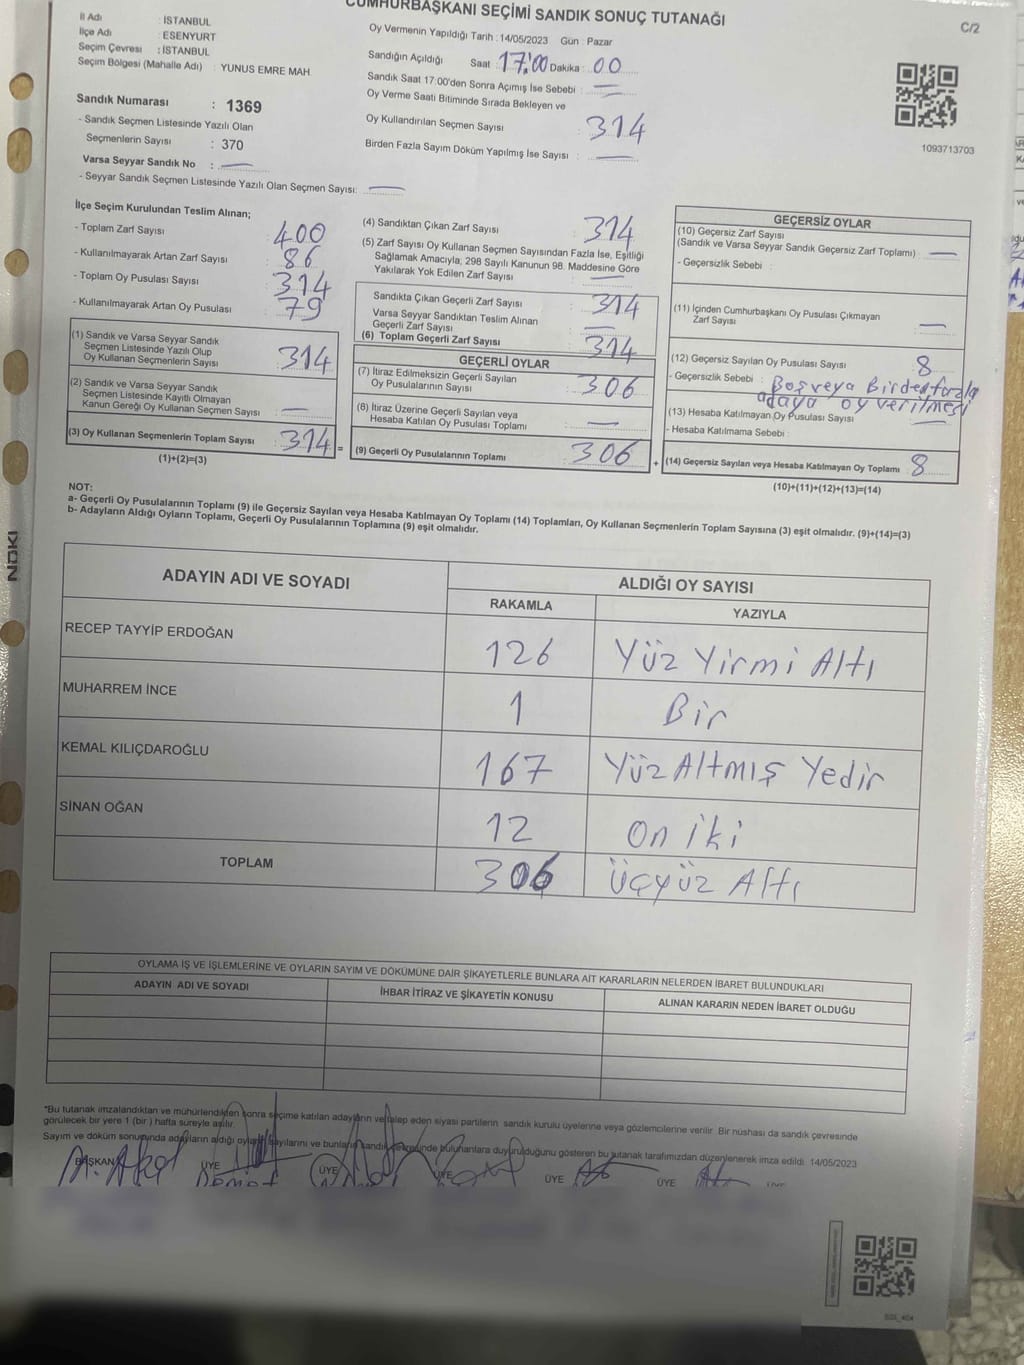 CUMHURBAŞKANI SEÇİMİ SANDIK SONUÇ TUTANAĞI
C/2
İl Adı : İSTANBUL
İlçe Adı : ESENYURT
Seçim Çevresi : İSTANBUL
Seçim Bölgesi (Mahalle Adı) : YUNUS EMRE MAH.
Sandık Numarası : 1369
- Sandık Seçmen Listesinde Yazılı Olan
Seçmenlerin Sayısı : 370
Varsa Seyyar Sandık No : —
- Seyyar Sandık Seçmen Listesinde Yazılı Olan Seçmen Sayısı: —
Oy Vermenin Yapıldığı Tarih : 14/05/2023 Gün : Pazar
Sandığın Açıldığı Saat : 17:00 Dakika : 00
Sandık Saat 17:00'den Sonra Açımış İse Sebebi : —
Oy Verme Saati Bitiminde Sırada Bekleyen ve
Oy Kullandırılan Seçmen Sayısı : 314
Birden Fazla Sayım Döküm Yapılmış İse Sayısı : —
1093713703
İlçe Seçim Kurulundan Teslim Alınan;
- Toplam Zarf Sayısı 400
- Kullanılmayarak Artan Zarf Sayısı 86
- Toplam Oy Pusulası Sayısı 314
- Kullanılmayarak Artan Oy Pusulası 79
(1) Sandık ve Varsa Seyyar Sandık
Seçmen Listesinde Yazılı Olup
Oy Kullanan Seçmenlerin Sayısı 314
(2) Sandık ve Varsa Seyyar Sandık
Seçmen Listesinde Kayıtlı Olmayan
Kanun Gereği Oy Kullanan Seçmen Sayısı —
(3) Oy Kullanan Seçmenlerin Toplam Sayısı 314 =
(1)+(2)=(3)
(4) Sandıktan Çıkan Zarf Sayısı 314
(5) Zarf Sayısı Oy Kullanan Seçmen Sayısından Fazla İse, Eşitliği
Sağlamak Amacıyla, 298 Sayılı Kanunun 98. Maddesine Göre
Yakılarak Yok Edilen Zarf Sayısı —
Sandıkta Çıkan Geçerli Zarf Sayısı 314
Varsa Seyyar Sandıktan Teslim Alınan
Geçerli Zarf Sayısı —
(6) Toplam Geçerli Zarf Sayısı 314
GEÇERLİ OYLAR
(7) İtiraz Edilmeksizin Geçerli Sayılan
Oy Pusulalarının Sayısı 306
(8) İtiraz Üzerine Geçerli Sayılan veya
Hesaba Katılan Oy Pusulası Toplamı —
(9) Geçerli Oy Pusulalarının Toplamı 306 +
GEÇERSİZ OYLAR
(10) Geçersiz Zarf Sayısı
(Sandık ve Varsa Seyyar Sandık Geçersiz Zarf Toplamı) : —
- Geçersizlik Sebebi :
(11) İçinden Cumhurbaşkanı Oy Pusulası Çıkmayan
Zarf Sayısı —
(12) Geçersiz Sayılan Oy Pusulası Sayısı 8
- Geçersizlik Sebebi : Boş veya Birden fazla
adaya oy verilmesi
(13) Hesaba Katılmayan Oy Pusulası Sayısı —
- Hesaba Katılmama Sebebi :
(14) Geçersiz Sayılan veya Hesaba Katılmayan Oy Toplamı 8
(10)+(11)+(12)+(13)=(14)
NOT:
a- Geçerli Oy Pusulalarının Toplamı (9) ile Geçersiz Sayılan veya Hesaba Katılmayan Oy Toplamı (14) Toplamları, Oy Kullanan Seçmenlerin Toplam Sayısına (3) eşit olmalıdır. (9)+(14)=(3)
b- Adayların Aldığı Oyların Toplamı, Geçerli Oy Pusulalarının Toplamına (9) eşit olmalıdır.
ADAYIN ADI VE SOYADI
ALDIĞI OY SAYISI
RAKAMLA YAZIYLA
RECEP TAYYİP ERDOĞAN 126 Yüz Yirmi Altı
MUHARREM İNCE 1 Bir
KEMAL KILIÇDAROĞLU 167 Yüz Altmış Yedir
SİNAN OĞAN 12 On iki
TOPLAM 306 Üçyüz Altı
OYLAMA İŞ VE İŞLEMLERİNE VE OYLARIN SAYIM VE DÖKÜMÜNE DAİR ŞİKAYETLERLE BUNLARA AİT KARARLARIN NELERDEN İBARET BULUNDUKLARI
ADAYIN ADI VE SOYADI İHBAR İTİRAZ VE ŞİKAYETİN KONUSU ALINAN KARARIN NEDEN İBARET OLDUĞU
*Bu tutanak imzalandıktan ve mühürlendikten sonra seçime katılan adayların ve talep eden siyasi partilerin sandık kurulu üyelerine veya gözlemcilerine verilir. Bir nüshası da sandık çevresinde
görülecek bir yere 1 (bir) hafta süreyle asılır.
Sayım ve döküm sonucunda adayların aldığı oy sayılarını ve bunların sandık çevresinde bulunanlara duyurulduğunu gösteren bu tutanak tarafımızdan düzenlenerek imza edildi. 14/05/2023
BAŞKAN ÜYE ÜYE ÜYE ÜYE ÜYE
NOKI